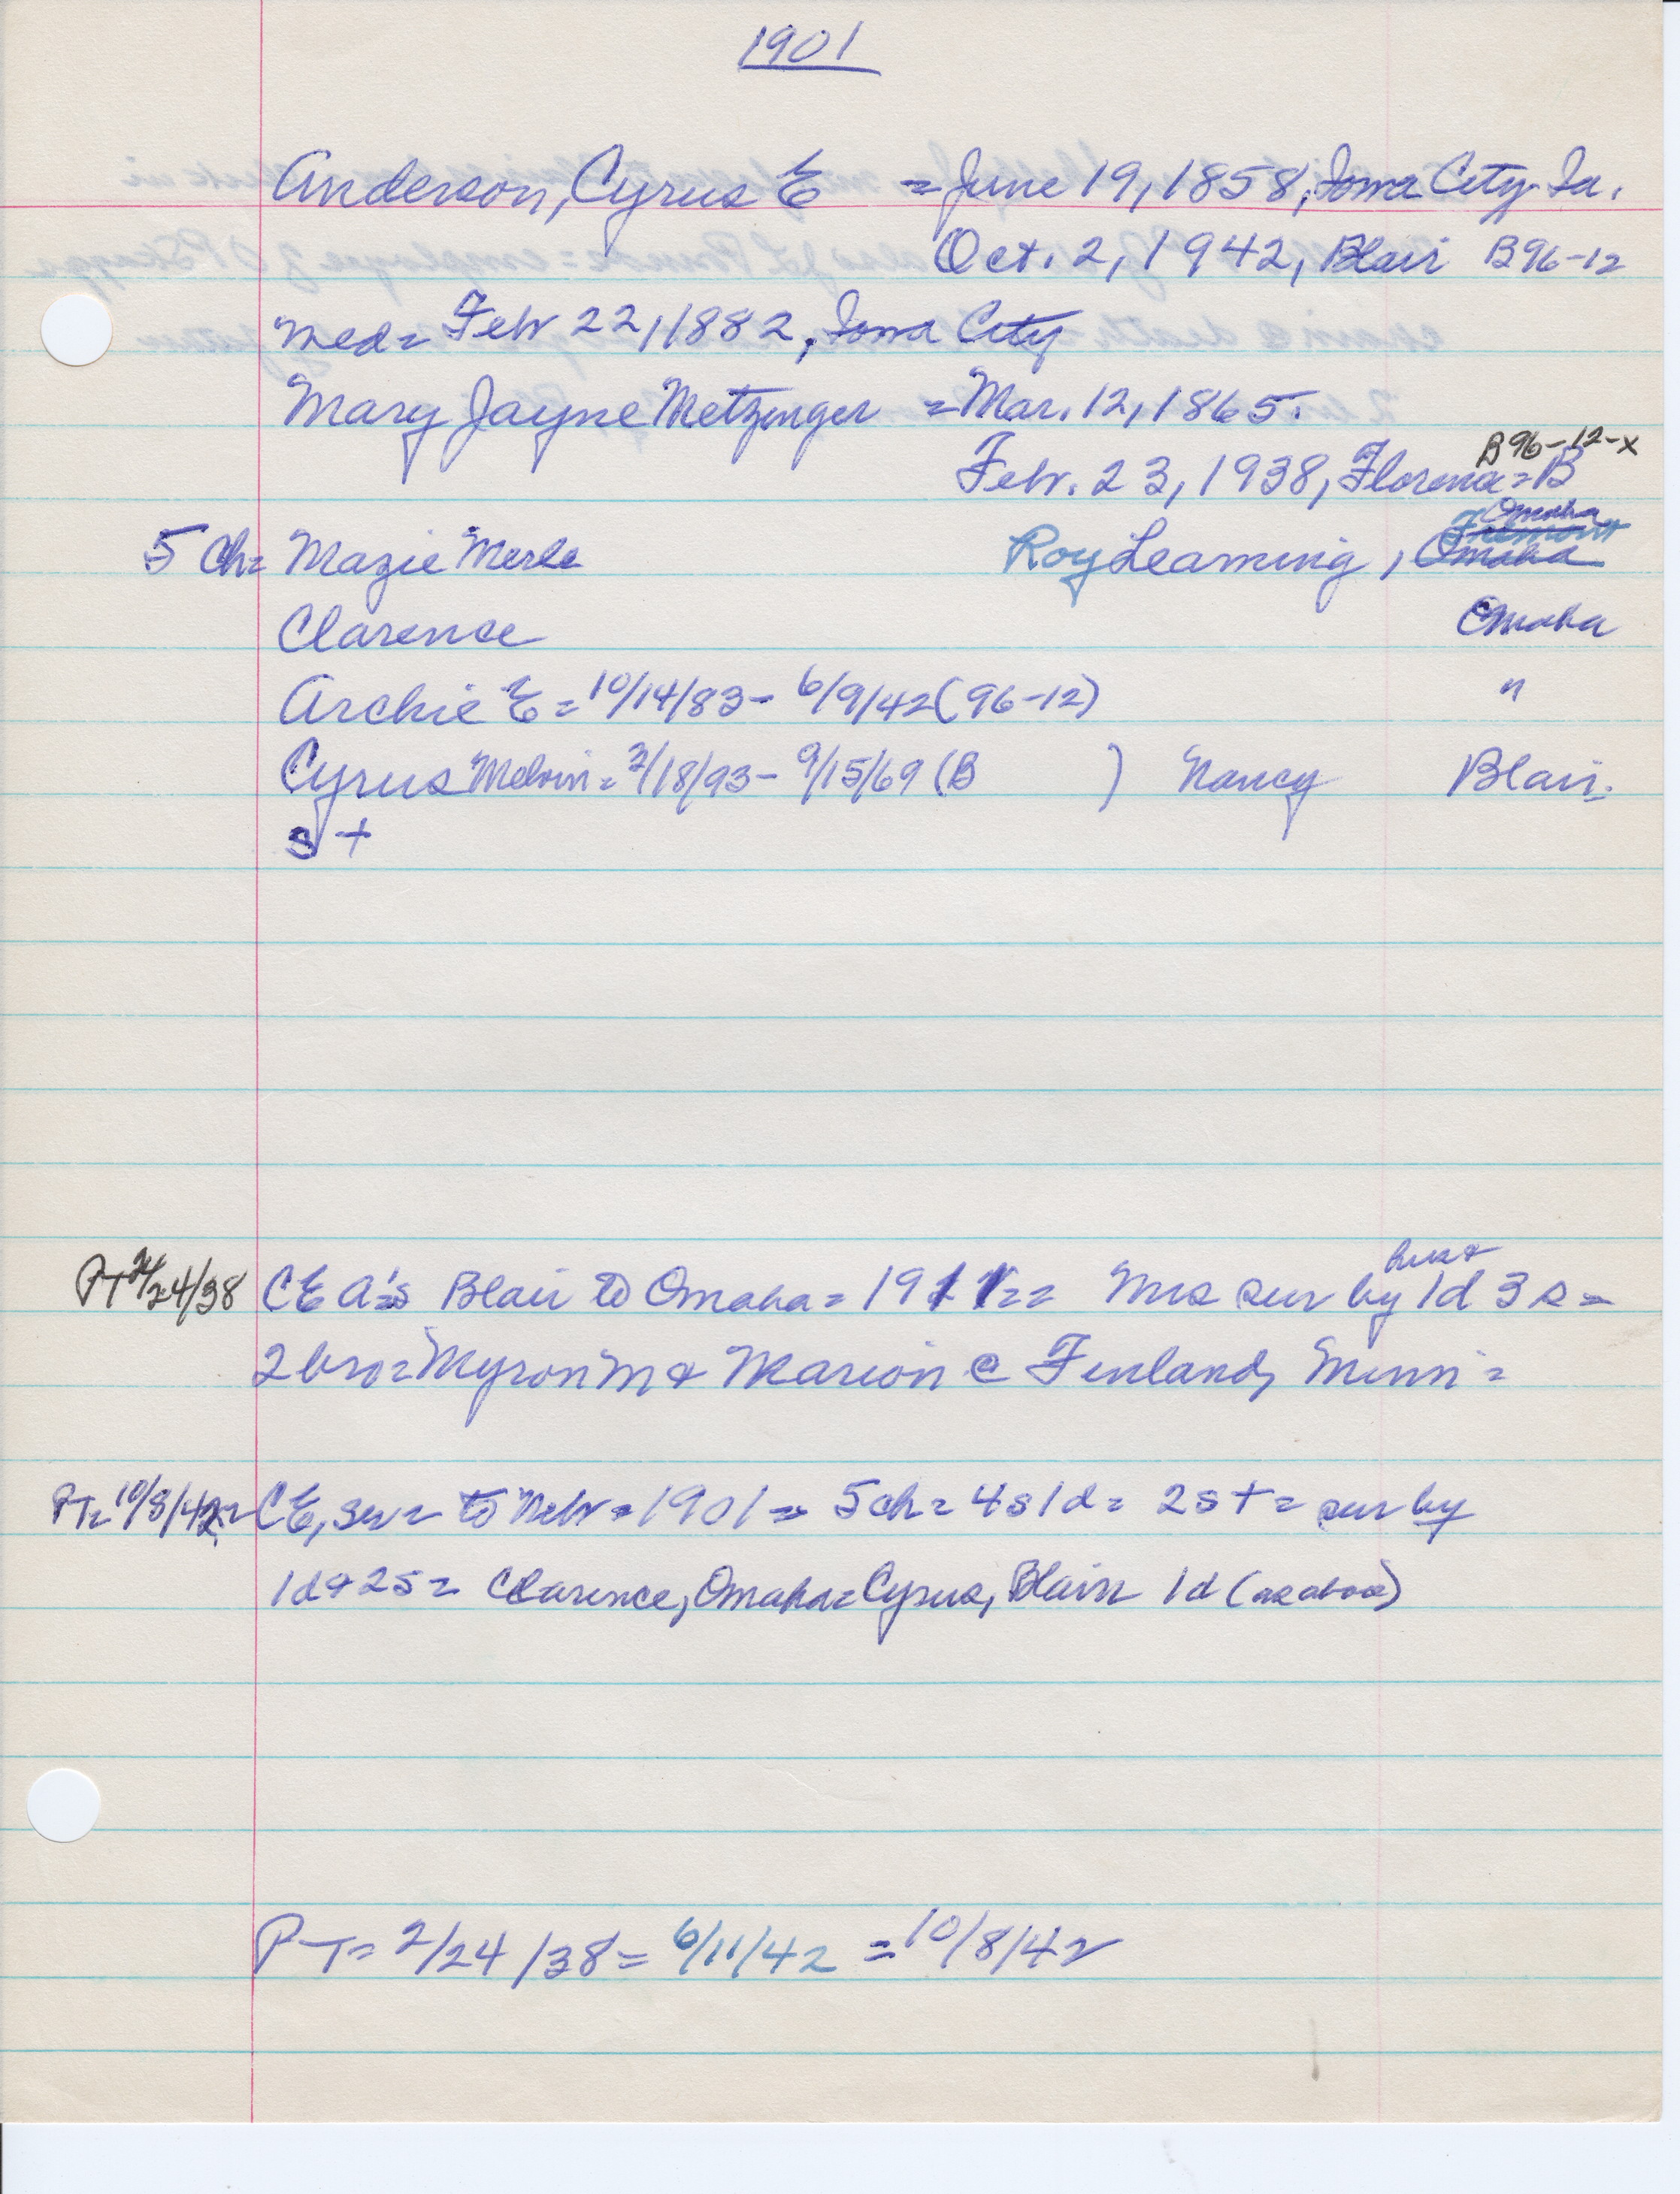 1901
Anderson, Cyrus E = June 19, 1858, Iowa City Ia.
Oct. 2, 1942, Blair B96-12
med= Febr 22, 1882, Iowa City
Mary Jayne Metzinger = Mar. 12, 1865.
B96-12-x
Febr. 23, 1938, Florence = B
Omaha
5 Ch= Mazie Merle Roy Leaming, Fremont Omaha
Clarence Omaha
Archie E = 10/14/83 - 6/9/42 (96-12) "
Cyrus Melvin = 2/18/93 - 9/15/69 (B ) Nancy Blair.
s +
hus &
PT 2/24/38 C E A's Blair to Omaha = 1911 == Mrs sur by 1d 3s =
2 bro = Myron M & Marion @ Finland, Minn =
PT= 10/8/42= CE, Sr = to Nebr = 1901 = 5 ch = 4s 1d = 2s + = sur by
1d & 2s = Clarence, Omaha = Cyrus, Blair 1d (as above)
PT= 2/24/38 = 6/11/42 = 10/8/42